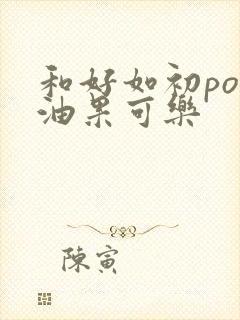 和好如初po
油果可樂
陳寅